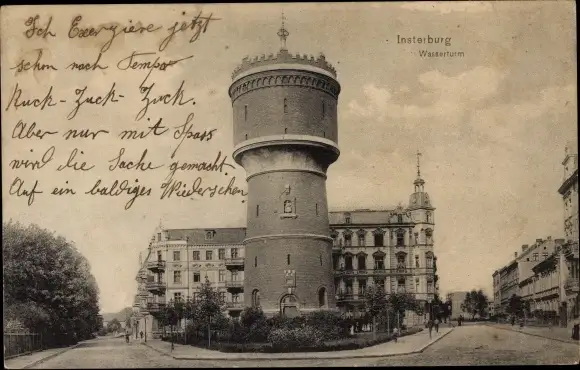 Ich Exerziere jetzt
schon nach Tempo
Ruck-Zuck-Zuck.
Aber nur mit Spass
wird die Sache gemacht.
Auf ein baldiges Wiedersehen
Insterburg
Wasserturm